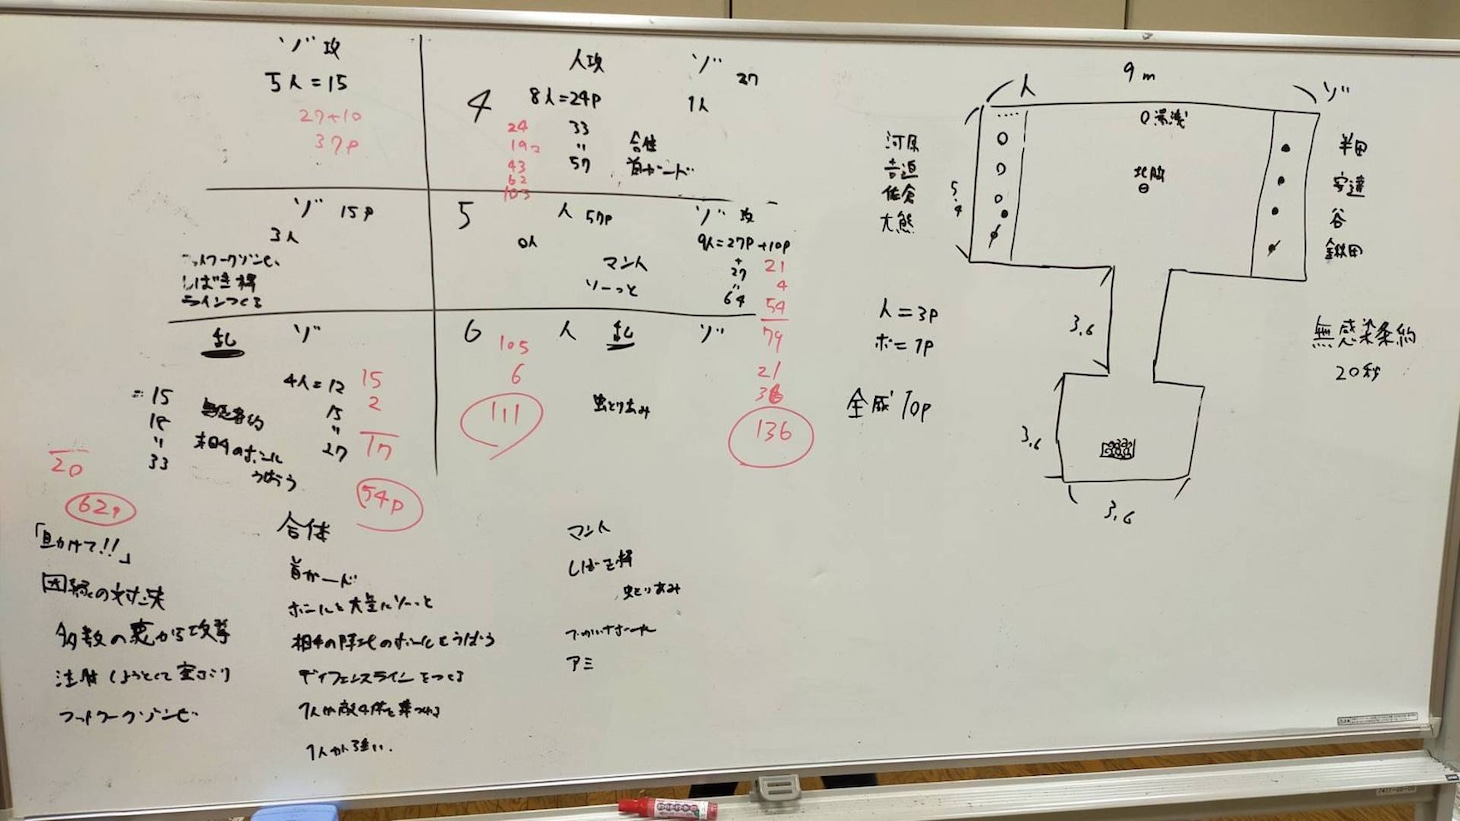 ゾ 攻
5人=15
27+10
37P
ゾ 15P
3人
フットワークゾンビ、
しばき棒
ラインつくる
乱 ゾ
4人=12
= 15
18
〃
33
20
62P
15
〃
27
相手のボール
うばう
15
2
17
54P
4
人攻
8人=24P
33
〃
57
合体
首ガード
24
19
43
62
103
ゾ 27
1人
5
人 57P
0人
マント
ソーっと
ゾ 攻
9人=27P+10P
+
27
〃
64
21
4
54
79
21
36
136
6
人 乱 ゾ
105
6
111
虫とりあみ
「助けて!!」
因縁の対決
多数の悪から攻撃
注射しようとして
フットワークゾンビ
合体
首ガード
ボールを大量にソーっと
相手の陣地のボールをうばう
ディフェンスラインをつくる
1人が敵4体を
1人が強い.
マント
しばき棒
虫とりあみ
アミ
人 9m ゾ
河原
吉迫
佐倉
大熊
5.4
北脇
半田
安達
谷
鎌田
3.6
3.6
3.6
人=3P
ボ=1P
全滅10P
無感染条約
20秒